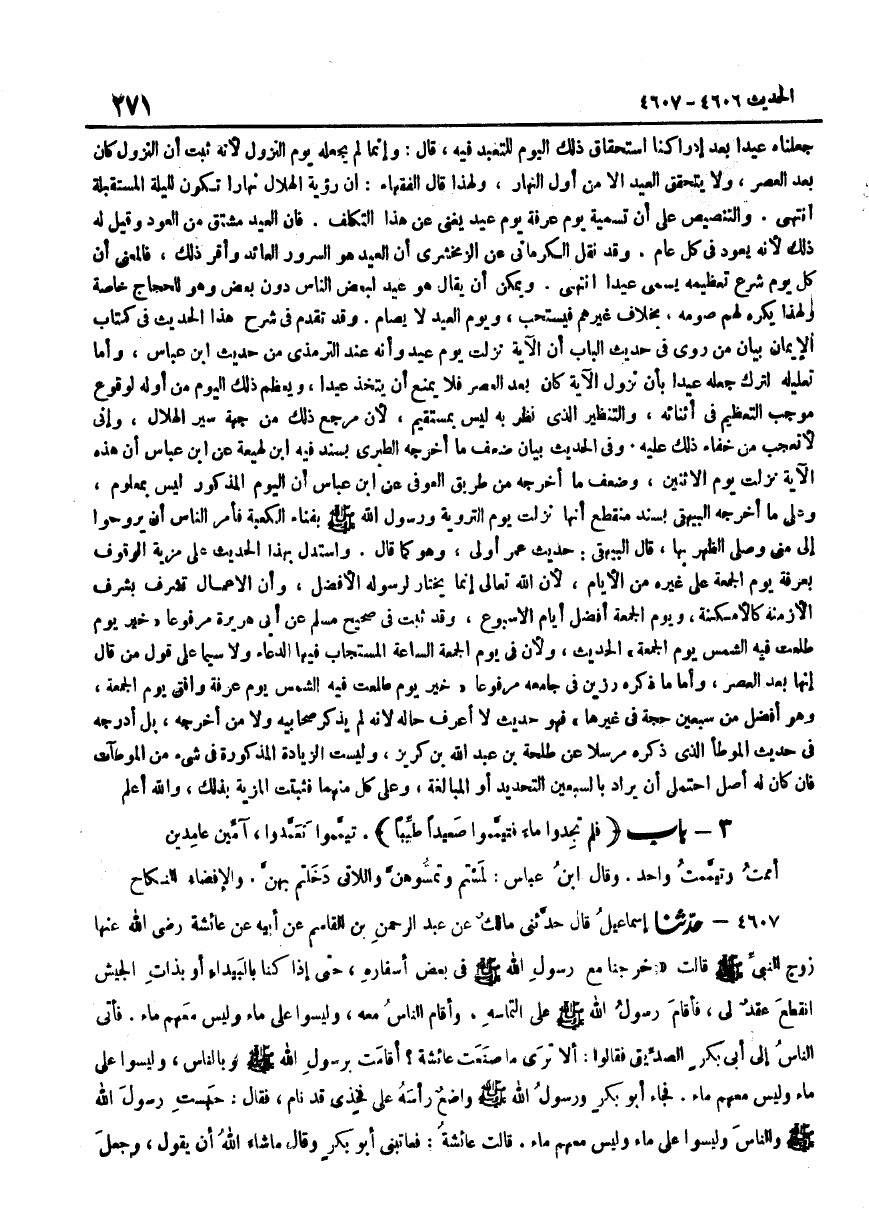 الحديث ٤٦٠٦ - ٤٦٠٧ ٢٧١
جعلناه عيدا بعد إدراكنا استحقاق ذلك اليوم للتعبد فيه ، قال : وإنما لم يجعله يوم النزول لأنه ثبت أن النزول كان
بعد العصر ، ولا يتحقق العيد الا من أول النهار ، ولهذا قال الفقهاء : ان رؤية الهلال نهارا تكون لليلة المستقبلة
انتهى . والتنصيص على أن تسمية يوم عرفة يوم عيد يغنى عن هذا التكلف . فان العيد مشتق من العود وقيل له
ذلك لأنه يعود فى كل عام . وقد نقل الكرمانى عن الزمخشرى أن العيد هو السرور العائد وأقر ذلك ، فالمعنى أن
كل يوم شرع تعظيمه يسمى عيدا انتهى . ويمكن أن يقال هو عيد لبعض الناس دون بعض وهو للحجاج خاصة
ولهذا يكره لهم صومه ، بخلاف غيرهم فيستحب ، ويوم العيد لا يصام . وقد تقدم فى شرح هذا الحديث فى كتاب
الإيمان بيان من روى فى حديث الباب أن الآية نزلت يوم عيد وأنه عند الترمذى من حديث ابن عباس ، وأما
تعليله لترك جعله عيدا بأن نزول الآية كان بعد العصر فلا يمنع أن يتخذ عيدا ، ويعظم ذلك اليوم من أوله لوقوع
موجب التعظيم فى أثنائه ، والتنظير الذى نظر به ليس بمستقيم ، لأن مرجع ذلك من جهة سير الهلال ، وإنى
لأتعجب من خفاء ذلك عليه . وفى الحديث بيان ضعف ما أخرجه الطبرى بسند فيه ابن لهيعة عن ابن عباس أن هذه
الآية نزلت يوم الاثنين ، وضعف ما أخرجه من طريق العوفى عن ابن عباس أن اليوم المذكور ليس بمعلوم ،
وعلى ما أخرجه البيهقى بسند منقطع أنها نزلت يوم التروية ورسول الله ﷺ بفناء الكعبة فأمر الناس أن يروحوا
إلى منى وصلى الظهر بها ، قال البيهقى : حديث عمر أولى ، وهو كما قال . واستدل بهذا الحديث على مزية الوقوف
بعرفة يوم الجمعة على غيره من الأيام ، لأن الله تعالى إنما يختار لرسوله الأفضل ، وأن الاعمال تشرف بشرف
الأزمنة كالأمكنة ، ويوم الجمعة أفضل أيام الاسبوع ، وقد ثبت فى صحيح مسلم عن أبى هريرة مرفوعا « خير يوم
طلعت فيه الشمس يوم الجمعة » الحديث ، ولأن فى يوم الجمعة الساعة المستجاب فيها الدعاء ولا سيما على قول من قال
إنها بعد العصر ، وأما ما ذكره رزين فى جامعه مرفوعا « خير يوم طلعت فيه الشمس يوم عرفة وافق يوم الجمعة ،
وهو أفضل من سبعين حجة فى غيرها » فهو حديث لا أعرف حاله لأنه لم يذكر صحابيه ولا من أخرجه ، بل أدرجه
فى حديث الموطأ الذى ذكره مرسلا عن طلحة بن عبد الله بن كريز ، وليست الزيادة المذكورة فى شىء من الموطآت
فان كان له أصل احتمل أن يراد بالسبعين التحديد أو المبالغة ، وعلى كل منهما فثبتت المزية بذلك ، والله أعلم
٣ - باب ﴿ فلم تجدوا ماء فتيمَّموا صَعيداً طيِّباً ﴾ . تيمَّموا تَعَمَّدوا ، آمِّين عامِدين
أممتُ وتيمَّمتُ واحد . وقال ابنُ عباس : لَمَستم وتمسُّوهنَّ واللاتى دَخَلتم بهنَّ . والإفضاء النكاح
٤٦٠٧ - حدثنا إسماعيلُ قال حدَّثنى مالكٌ عن عبد الرحمنِ بنِ القاسم عن أبيه عن عائشة رضى الله عنها
زوجِ النبىِّ ﷺ قالت « خرجنا مع رسولِ الله ﷺ فى بعض أسفاره ، حتى إذا كنا بالبَيداءِ أو بذاتِ الجيش
انقطعَ عقدٌ لى ، فأقامَ رسولُ الله ﷺ على التماسهِ . وأقام الناسُ معه ، وليسوا على ماء وليس معهم ماء . فأتى
الناسُ إلى أبى بكرٍ الصدِّيق فقالوا : ألا ترَى ما صنَعَت عائشة ؟ أقامَت برسولِ الله ﷺ وبالناس ، وليسوا على
ماء وليس معهم ماء . فجاء أبو بكرٍ ورسولُ الله ﷺ واضعٌ رأسَهُ على فَخِذى قد نام ، فقال : حبَستِ رسولَ الله
ﷺ والناسَ وليسوا على ماء وليس معهم ماء . قالت عائشةُ : فعاتبنى أبو بكرٍ وقال ماشاء اللهُ أن يقول ، وجعلَ